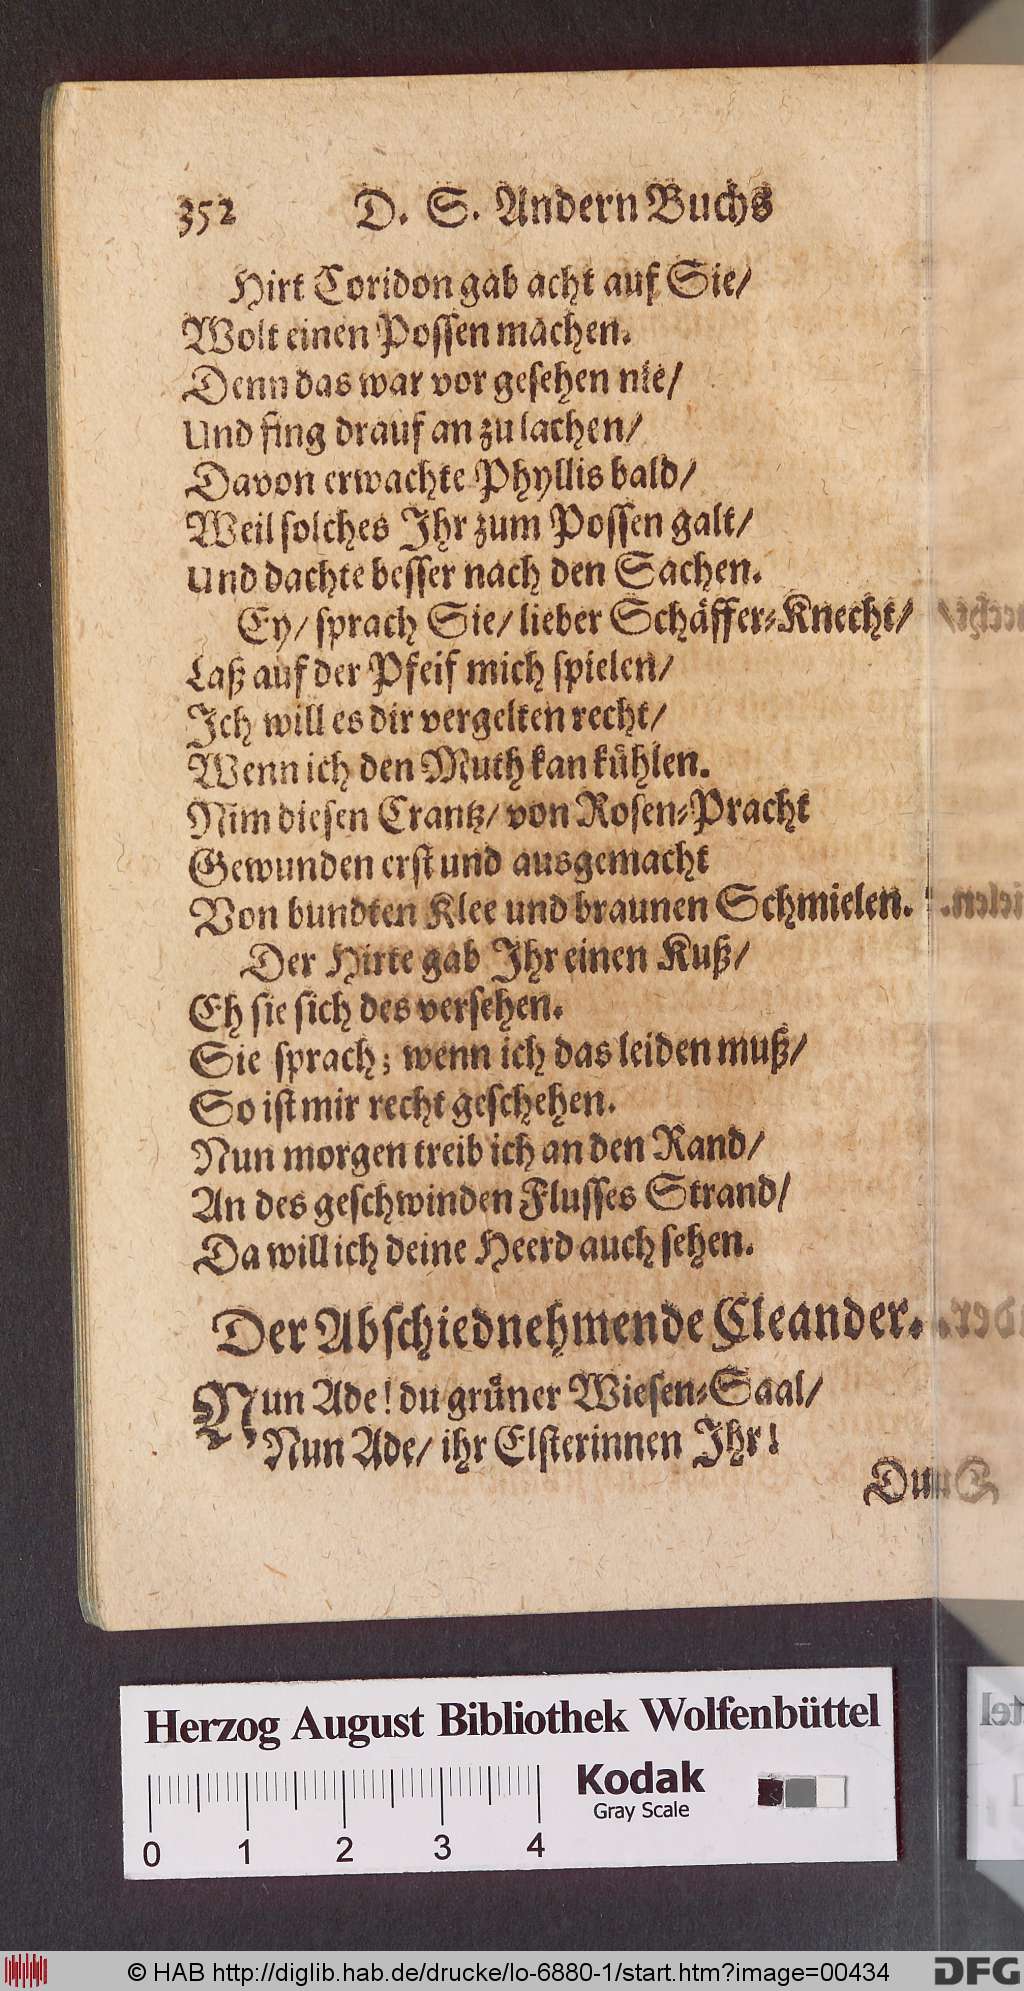 352 D. S. Andern Buchs
Hirt Coridon gab acht auf Sie/
Wolt einen Possen machen.
Denn das war vor gesehen nie/
Und fing drauf an zu lachen/
Davon erwachte Phyllis bald/
Weil solches Ihr zum Possen galt/
Und dachte besser nach den Sachen.
Ey/ sprach Sie/ lieber Schäffer-Knecht/
Laß auf der Pfeif mich spielen/
Ich will es dir vergelten recht/
Wenn ich den Muth kan kühlen.
Nim diesen Crantz/ von Rosen-Pracht
Gewunden erst und ausgemacht
Von bundten Klee und braunen Schmielen.
Der Hirte gab Ihr einen Kuß/
Eh sie sich des versehen.
Sie sprach; wenn ich das leiden muß/
So ist mir recht geschehen.
Nun morgen treib ich an den Rand/
An des geschwinden Flusses Strand/
Da will ich deine Heerd auch sehen.
Der Abschiednehmende Cleander.
Nun Ade! du grüner Wiesen-Saal/
Nun Ade/ ihr Elsterinnen Ihr!
Du
Herzog August Bibliothek Wolfenbüttel
Kodak
Gray Scale
0 1 2 3 4
© HAB http://diglib.hab.de/drucke/lo-6880-1/start.htm?image=00434
DFG